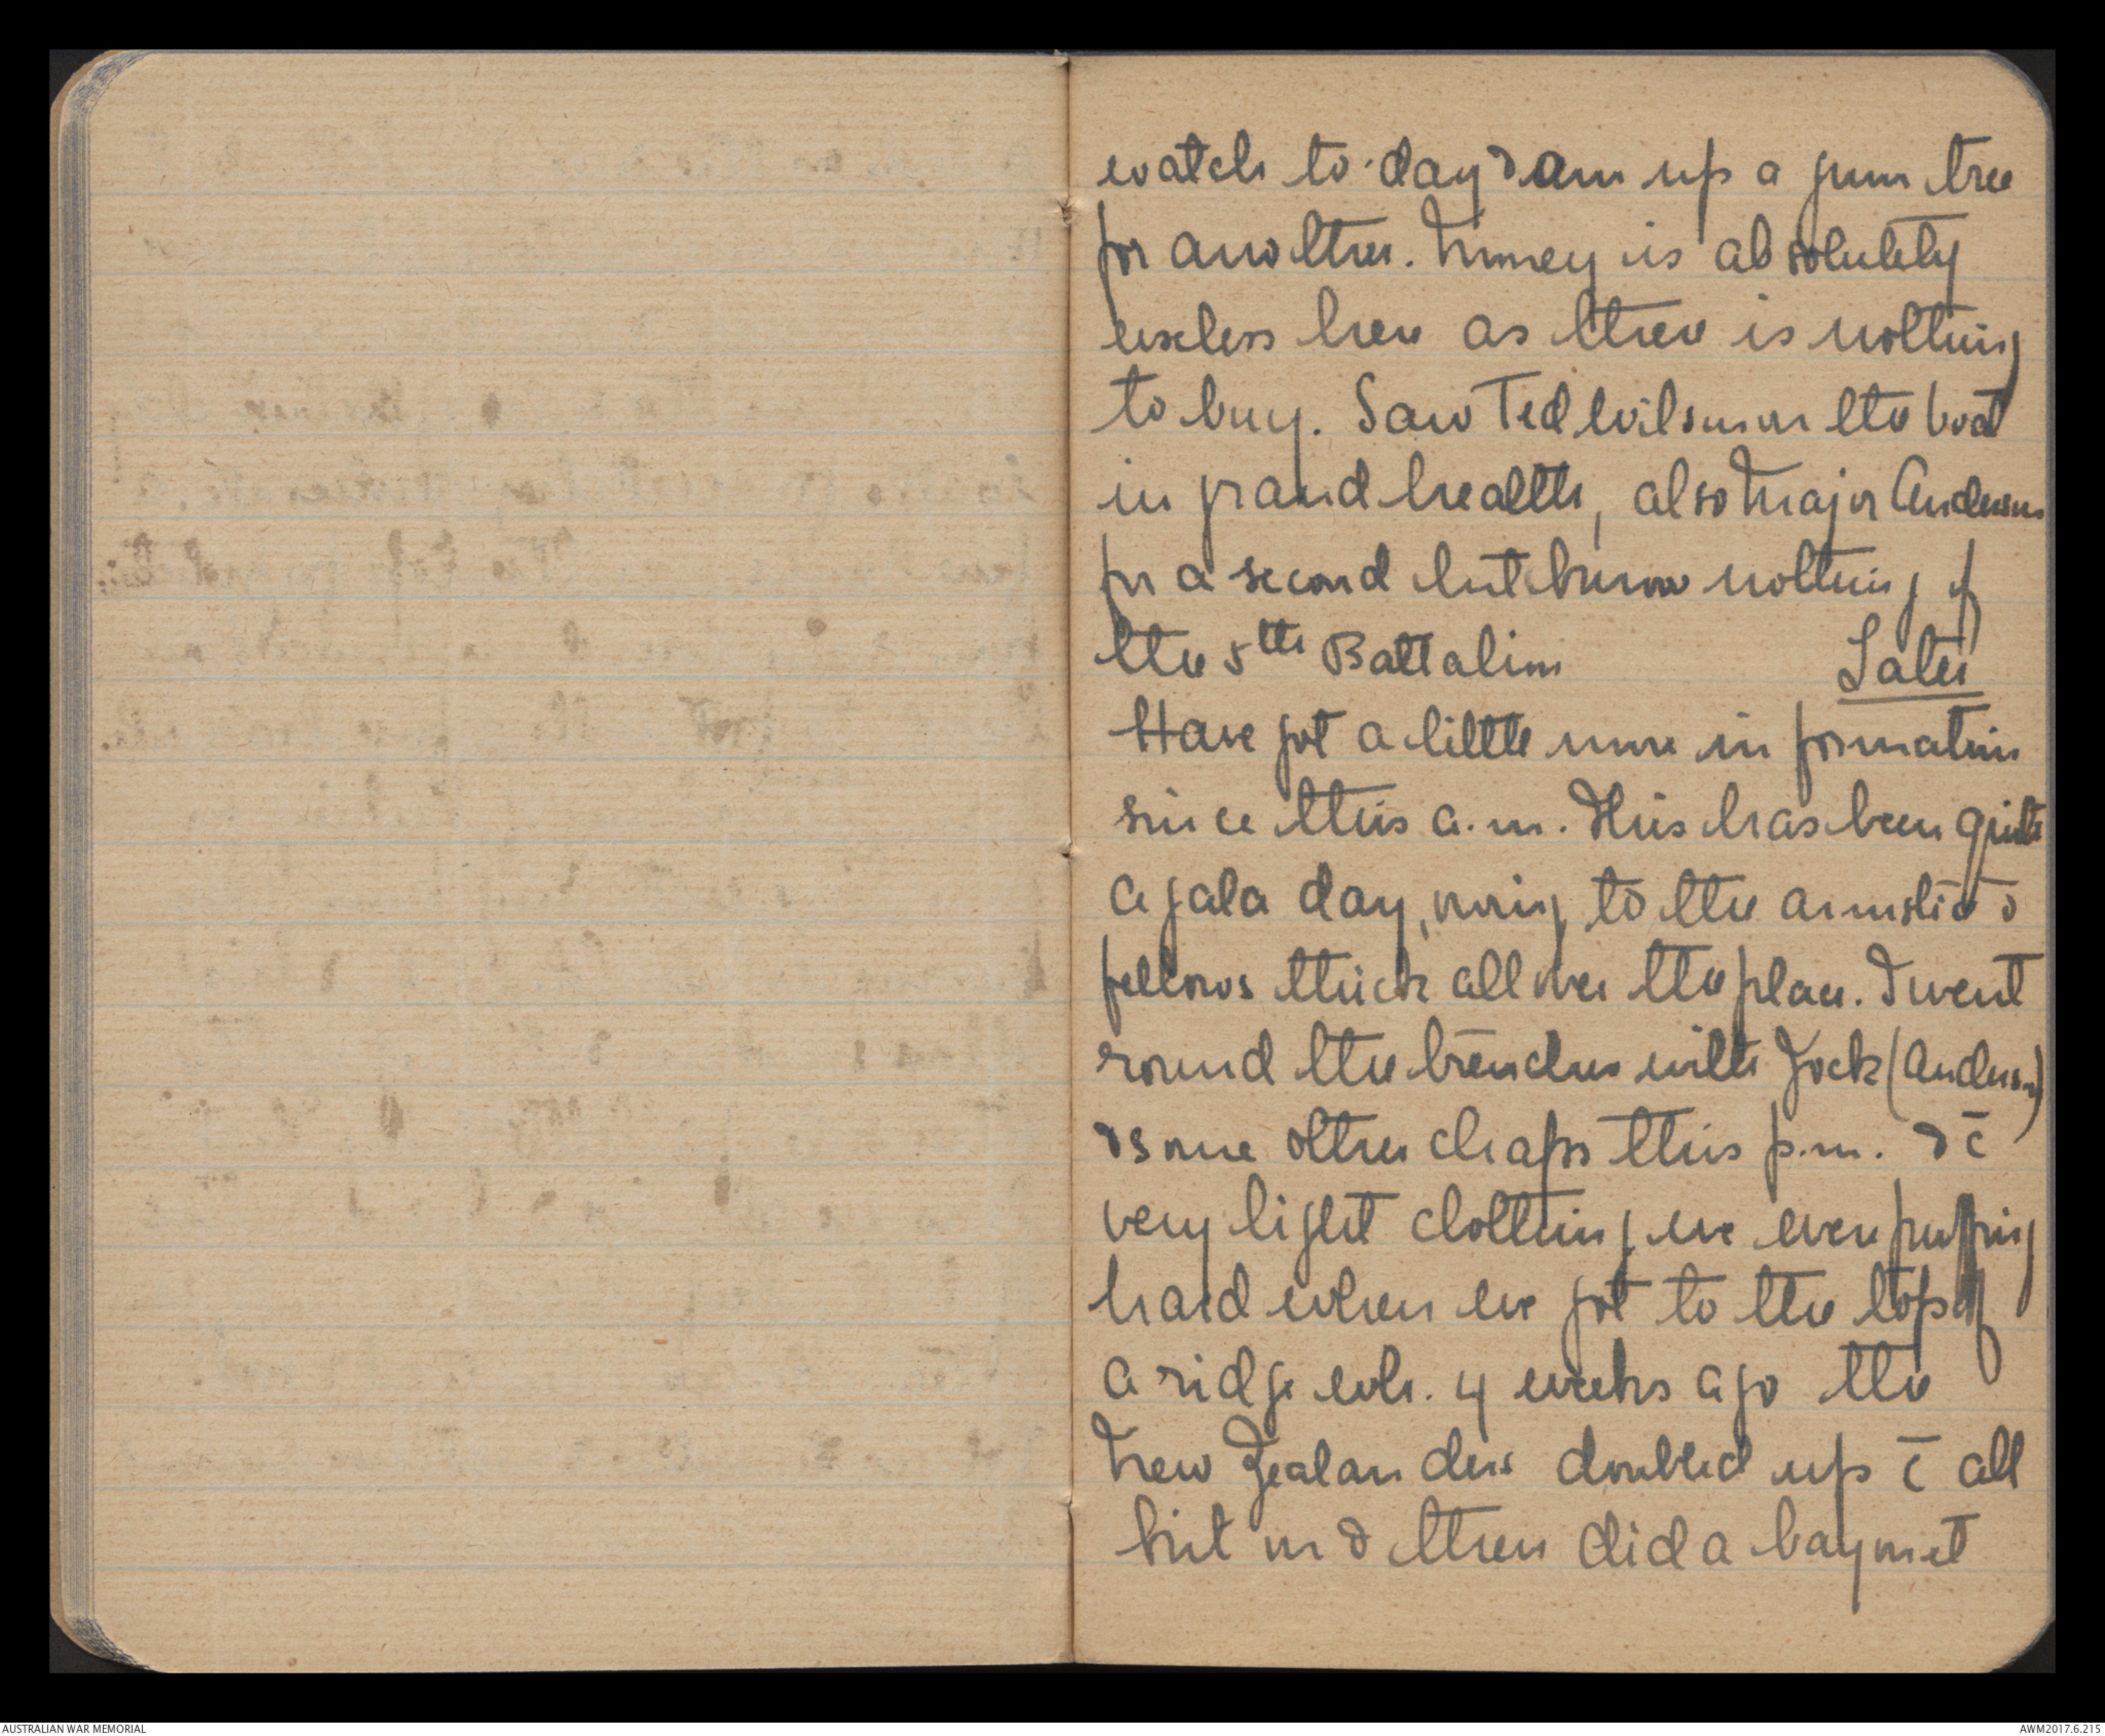 watch to-day & am up a gum tree
for another. Money is absolutely
useless here as there is nothing
to buy. Saw Ted Wilson on the boat
in grand health, also Major Anderson
for a second but know nothing of
the 5th Battalion
Later
Have got a little more information
since this a.m. This has been quite
a gala day, owing to the armistice &
fellows thick all over the place. I went
round the trenches with Jock (Anderson)
& some other chaps this p.m. & c̄
very light clothing we were puffing
hard when we got to the top of
a ridge wh. 4 weeks ago the
New Zealanders doubled up c̄ all
kit on & then did a bayonet
AUSTRALIAN WAR MEMORIAL
AWM2017.6.215